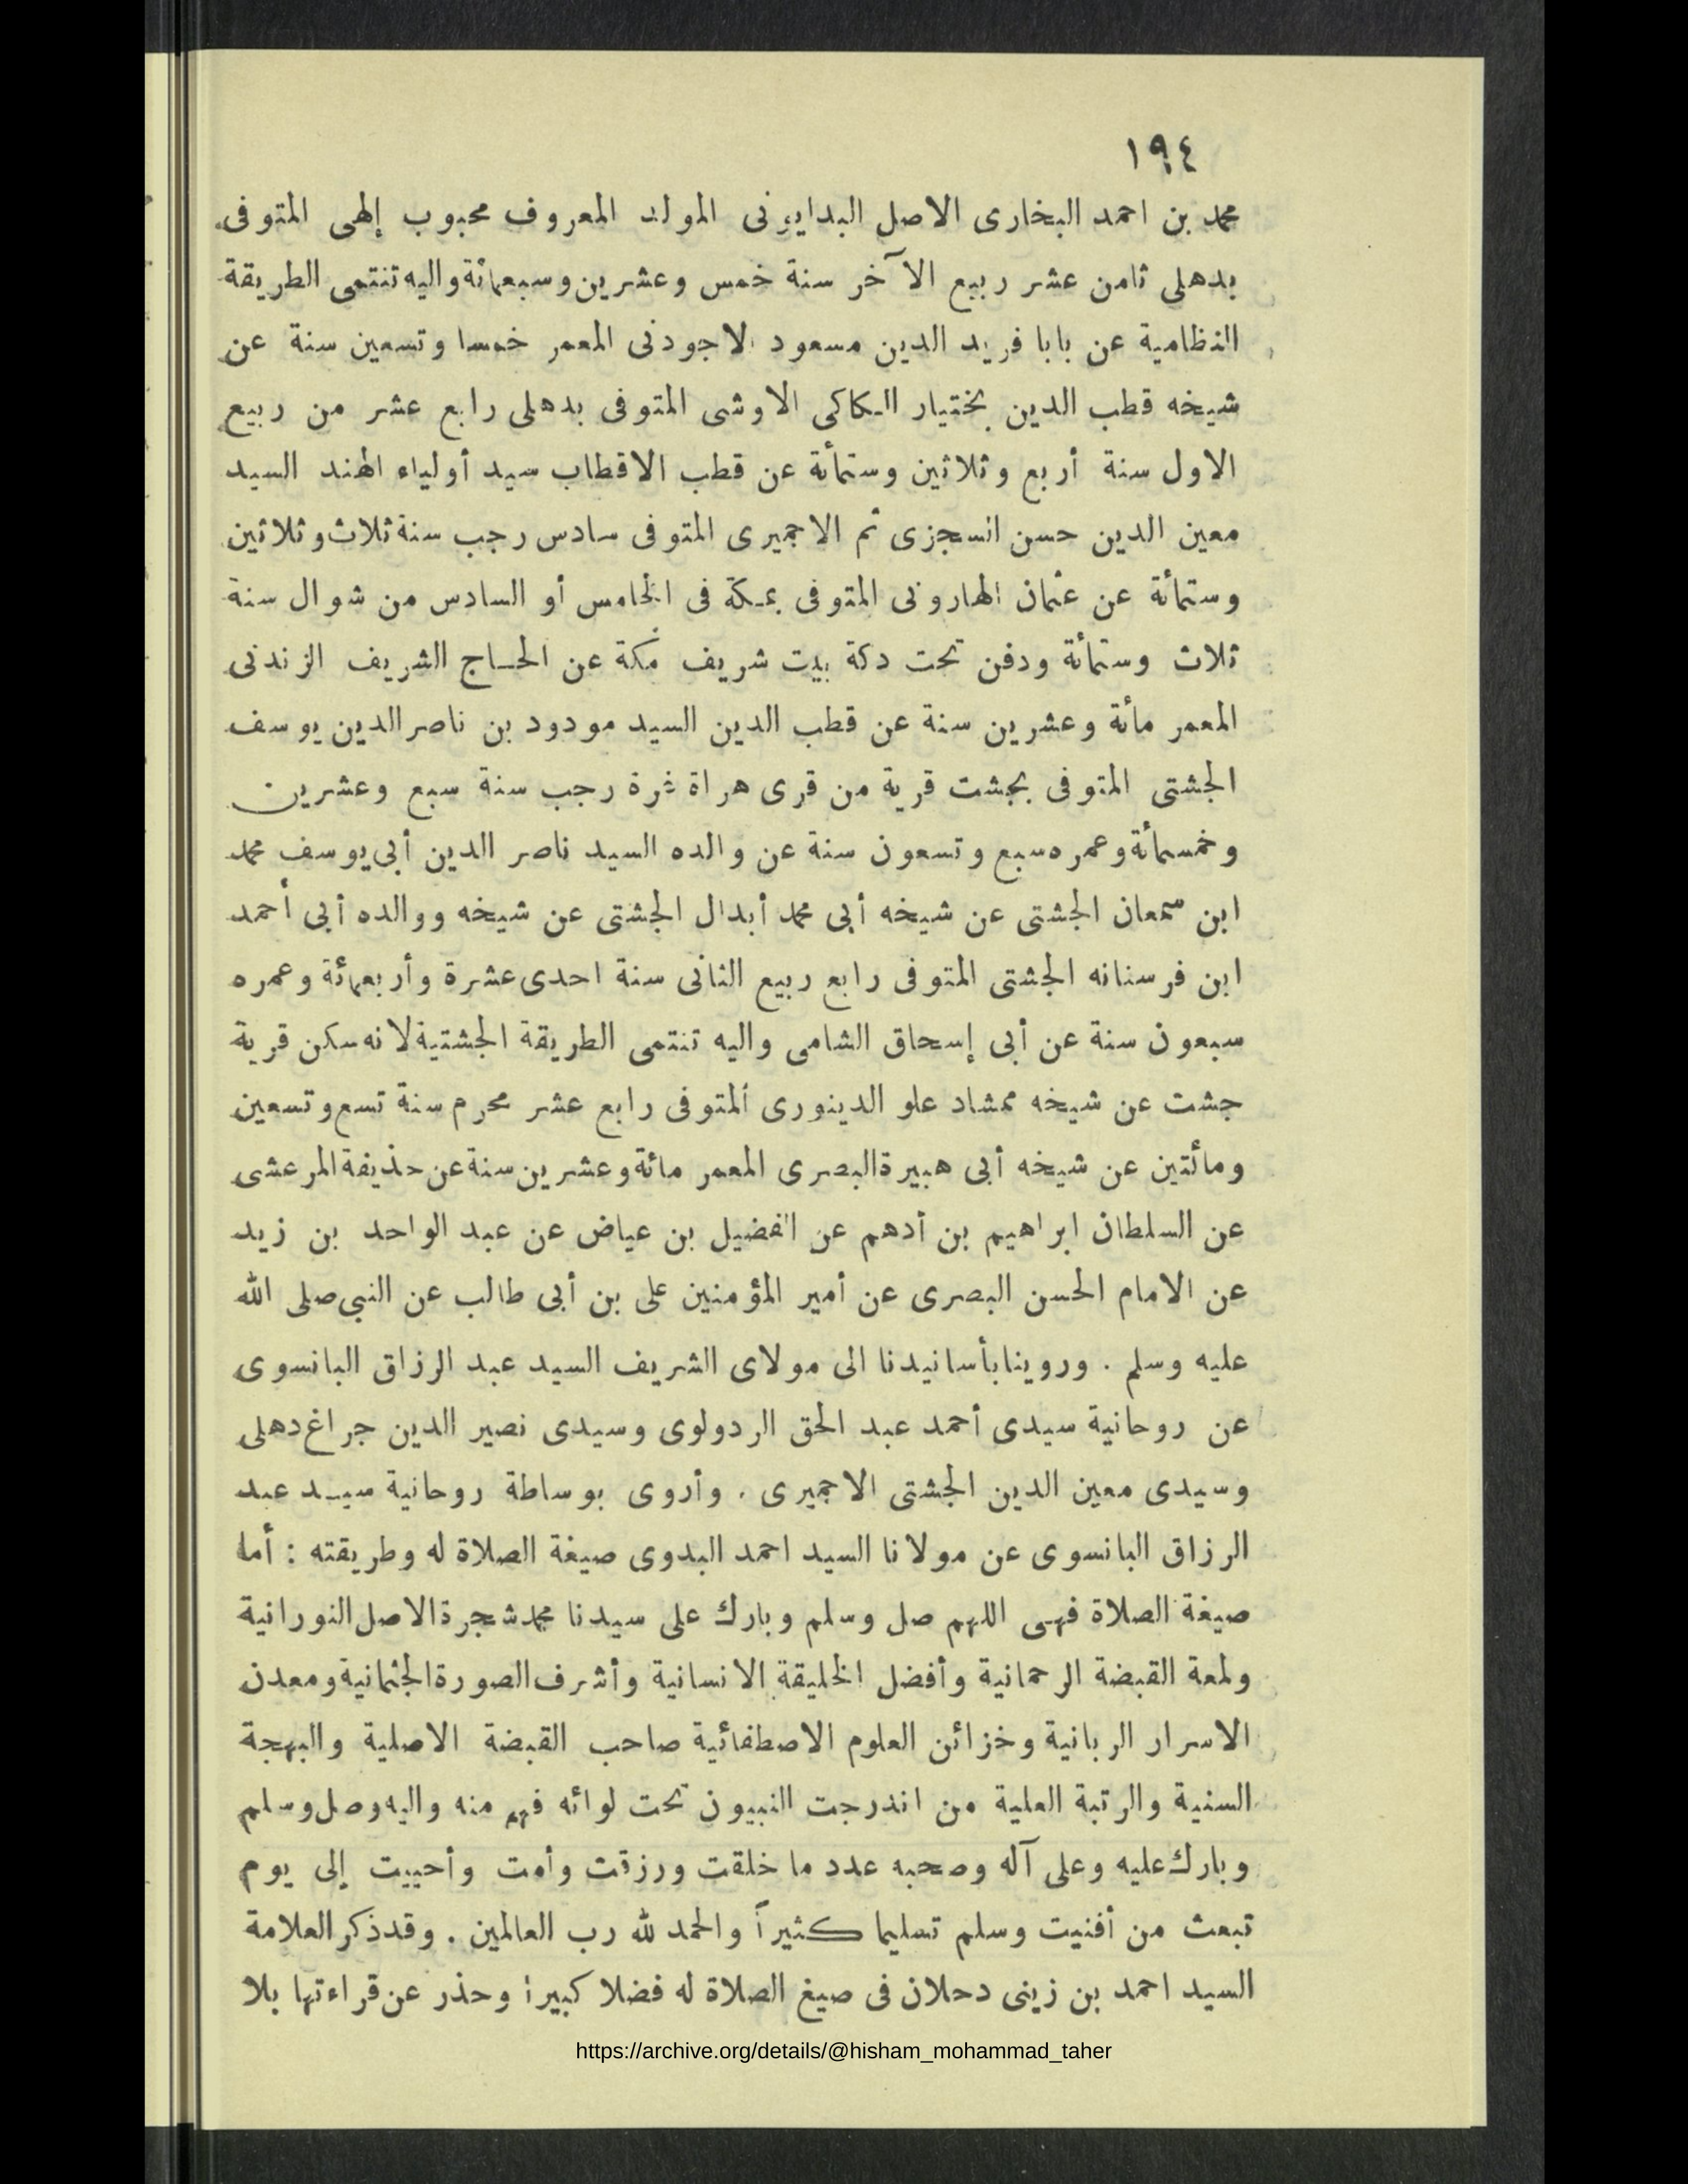 ١٩٤
محمد بن احمد البخارى الاصل البدايونى المولد المعروف محبوب إلهى المتوفى
بدهلى ثامن عشر ربيع الآخر سنة خمس وعشرين وسبعمائة واليه تنتمى الطريقة
النظامية عن بابا فريد الدين مسعود الاجودنى المعمر خمسا وتسعين سنة عن
شيخه قطب الدين بختيار الكاكى الاوشى المتوفى بدهلى رابع عشر من ربيع
الاول سنة أربع وثلاثين وستمأئة عن قطب الاقطاب سيد أولياء الهند السيد
معين الدين حسن السجزى ثم الاجميرى المتوفى سادس رجب سنة ثلاث وثلاثين
وستمأئة عن عثمان الهارونى المتوفى بمكة فى الخامس أو السادس من شوال سنة
ثلاث وستمأئة ودفن تحت دكة بيت شريف مكة عن الحاج الشريف الزندنى
المعمر مائة وعشرين سنة عن قطب الدين السيد مودود بن ناصر الدين يوسف
الجشتى المتوفى بجشت قرية من قرى هراة غرة رجب سنة سبع وعشرين
وخمسمأئة وعمره سبع وتسعون سنة عن والده السيد ناصر الدين أبى يوسف محمد
ابن سمعان الجشتى عن شيخه أبى محمد أبدال الجشتى عن شيخه ووالده أبى أحمد
ابن فرسنانه الجشتى المتوفى رابع ربيع الثانى سنة احدى عشرة وأربعمائة وعمره
سبعون سنة عن أبى إسحاق الشامى واليه تنتمى الطريقة الجشتية لانه سكن قرية
جشت عن شيخه ممشاد علو الدينورى المتوفى رابع عشر محرم سنة تسع وتسعين
ومائتين عن شيخه أبى هبيرة البصرى المعمر مائة وعشرين سنة عن حذيفة المرعشى
عن السلطان ابراهيم بن أدهم عن الفضيل بن عياض عن عبد الواحد بن زيد
عن الامام الحسن البصرى عن أمير المؤمنين على بن أبى طالب عن النبي صلى الله
عليه وسلم . وروينا بأسانيدنا الى مولاى الشريف السيد عبد الرزاق البانسوى
عن روحانية سيدى أحمد عبد الحق الردولوى وسيدى نصير الدين جراغ دهلى
وسيدى معين الدين الجشتى الاجميرى . وأروى بوساطة روحانية سيد عبد
الرزاق البانسوى عن مولانا السيد احمد البدوى صيغة الصلاة له وطريقته : أما
صيغة الصلاة فهى اللهم صل وسلم وبارك على سيدنا محمد شجرة الاصل النورانية
ولمعة القبضة الرحمانية وأفضل الخليقة الانسانية وأشرف الصورة الجثمانية ومعدن
الاسرار الربانية وخزائن العلوم الاصطفائية صاحب القبضة الاصلية والبهجة
السنية والرتبة العلية من اندرجت النبيون تحت لوائه فهم منه واليه وصل وسلم
وبارك عليه وعلى آله وصحبه عدد ما خلقت ورزقت وأمت وأحييت إلى يوم
تبعث من أفنيت وسلم تسليما كثيراً والحمد لله رب العالمين . وقد ذكر العلامة
السيد احمد بن زينى دحلان فى صيغ الصلاة له فضلا كبيرا وحذر عن قراءتها بلا
https://archive.org/details/@hisham_mohammad_taher